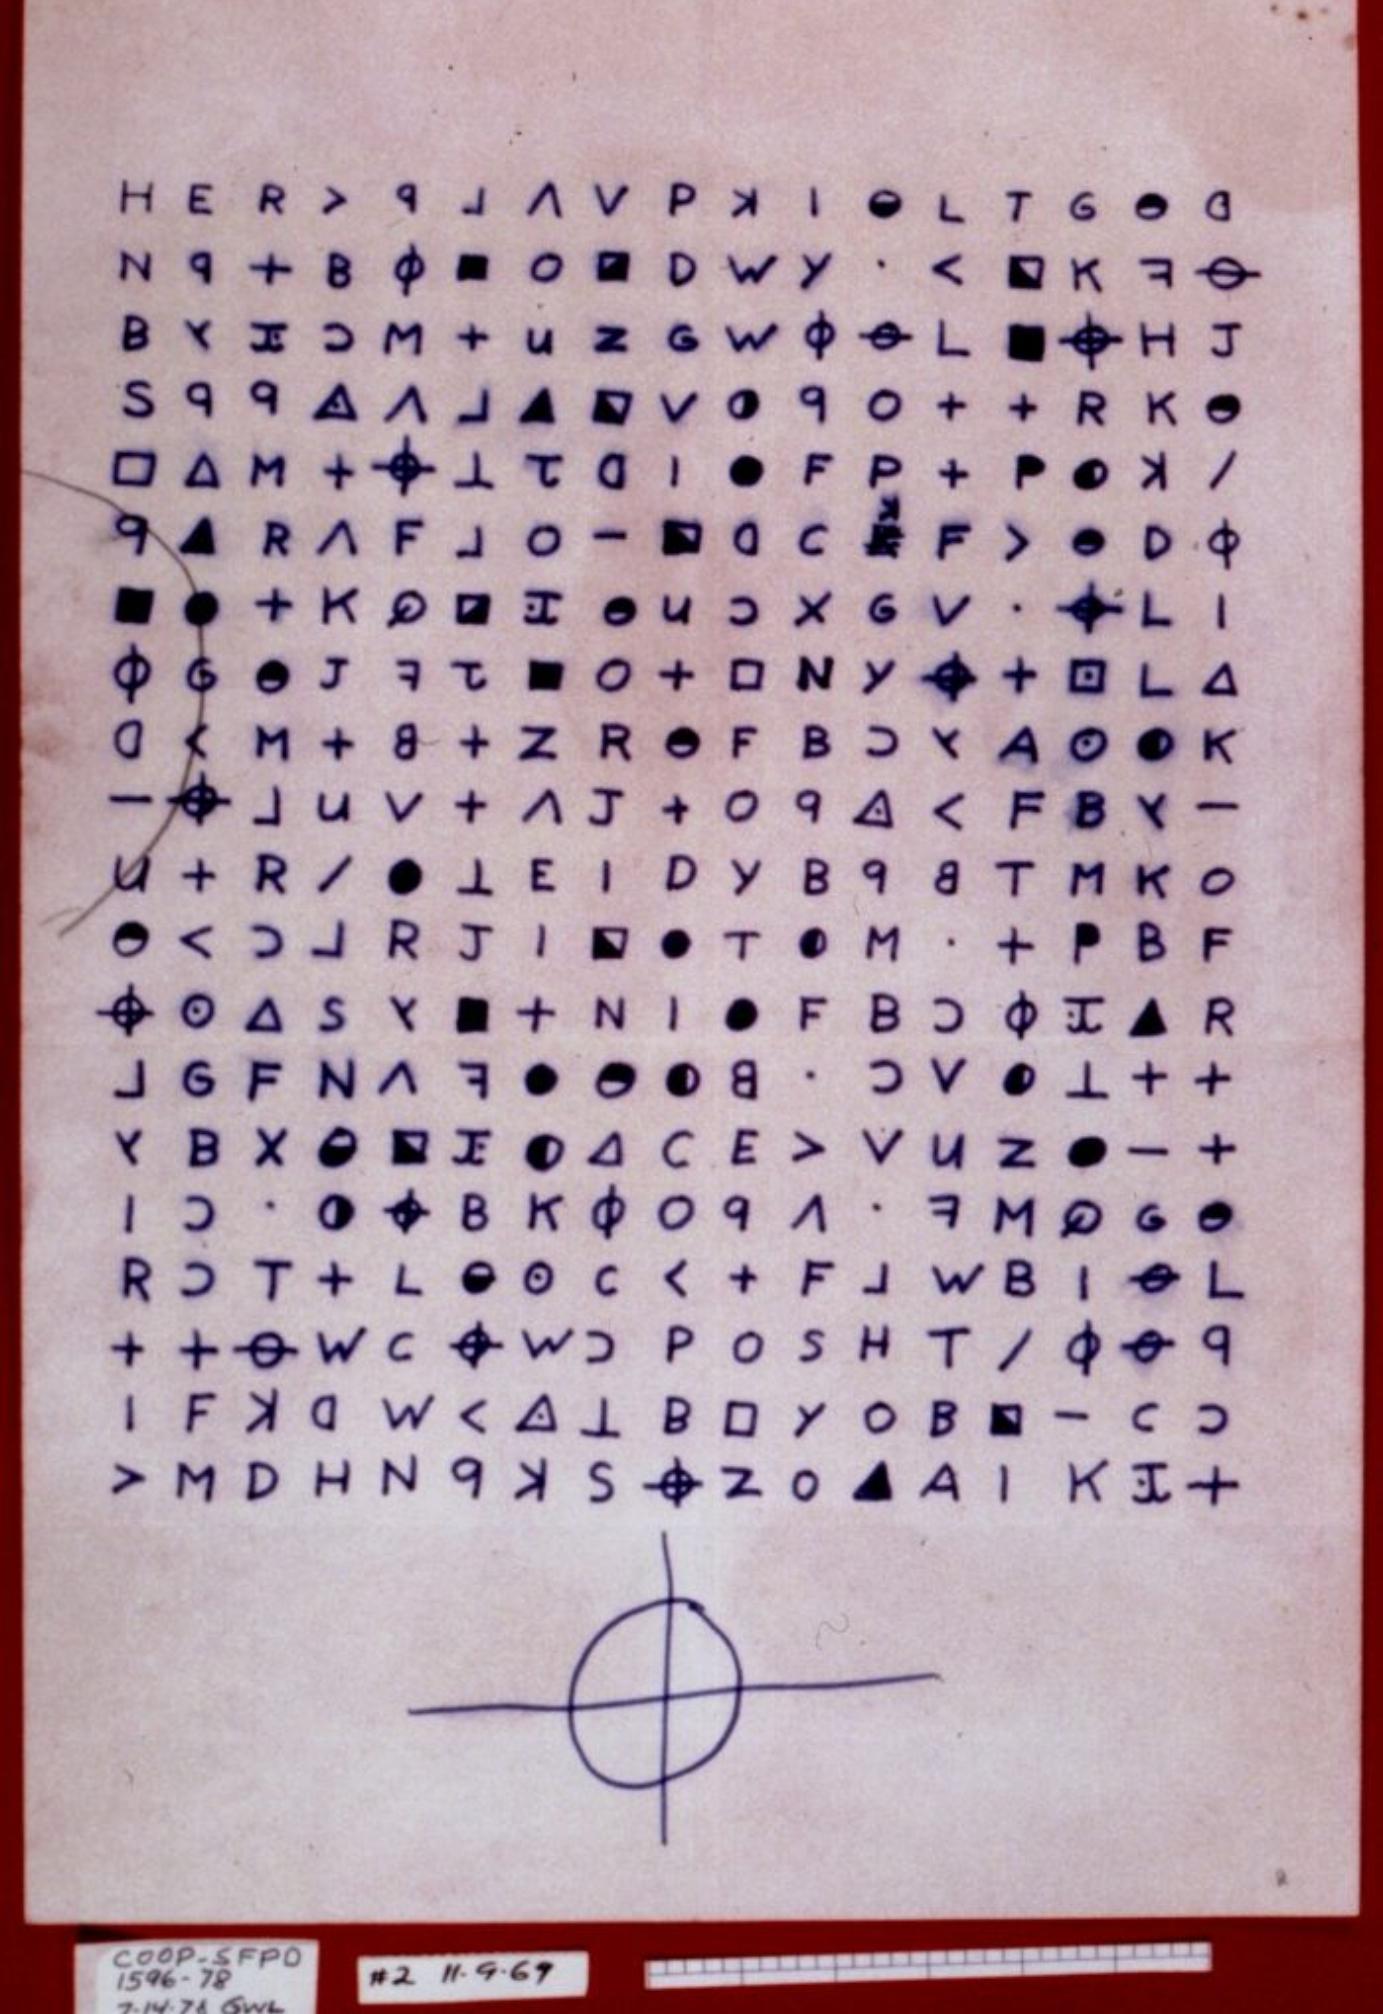 H E R > ꟼ ⅃ Λ V P ꓘ I ◒ L T G ◒ ᗡ
N ꟼ + B ϕ ■ O ◪ D W Y · < ◣ K ꟻ ⊖
B ⅄ 工 Ɔ M + U Z G W ϕ ⊖ L ■ ⌖ H J
S ꟼ ꟼ ◬ Λ ⅃ ▲ ◣ V ◑ ꟼ O + + R K ◒
□ △ M + ⌖ ⊥ τ ᗡ I ● F P + P ◑ ꓘ /
ꟼ ▲ R Λ F ⅃ O – ◣ ᗡ C ꓘ F > ◒ D ϕ
■ ● + K ∅ ◪ 工 ◒ U Ɔ X G V · ⌖ L I
ϕ G ◒ J ꟻ τ ■ O + □ N Y ⌖ + ⊡ L △
ᗡ < M + ᗺ + Z R ◒ F B Ɔ ⅄ A ⊙ ◑ K
– ⌖ ⅃ U V + Λ J + O ꟼ ◬ < F B ⅄ –
U + R / ● ⊥ E I D Y B ꟼ ᗺ T M K O
◒ < Ɔ ⅃ R J I ◣ ● T ◑ M · + P B F
⌖ ⊙ △ S ⅄ ■ + N I ● F B Ɔ ϕ 工 ▲ R
⅃ G F N Λ ꟻ ● ◒ ◑ ᗺ · Ɔ V ◑ ⊥ + +
⅄ B X ◒ ◣ 工 ◑ △ C E > V U Z ● – +
I Ɔ · ◑ ⌖ B K ϕ O ꟼ Λ · ꟻ M ∅ G ◒
R Ɔ T + L ◒ ⊙ C < + F ⅃ W B I ⊖ L
+ + ⊖ W C ⌖ W Ɔ P O S H T / ϕ ⊖ ꟼ
I F ꓘ ᗡ W < ◬ ⊥ B □ Y O B ◣ – C Ɔ
> M D H N ꟼ ꓘ S ⌖ Z O ▲ A I K 工 +
COOP-SFPD
1596-78
7-14-78 GWL
#2 11-9-69